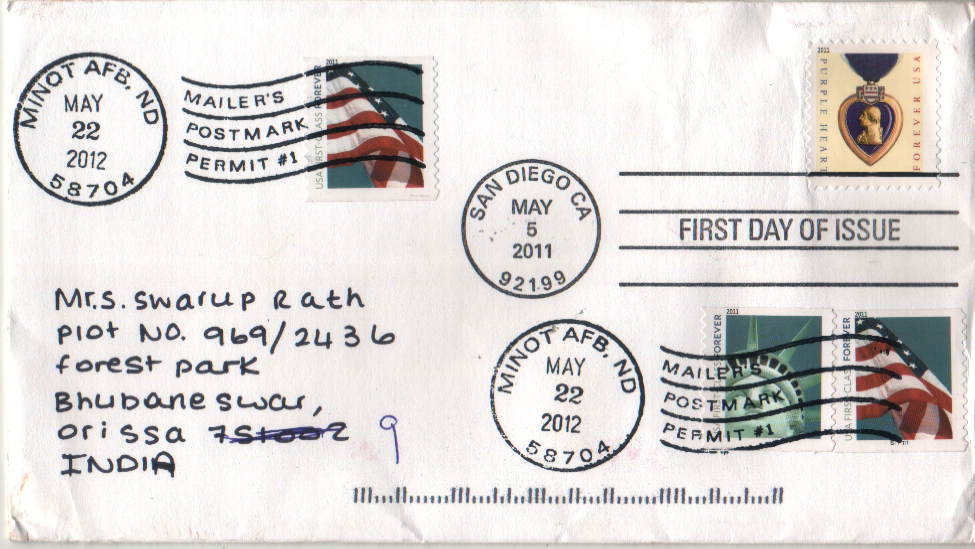 MINOT AFB, ND
MAY
22
2012
58704
MAILER'S
POSTMARK
PERMIT #1
2011
USA FIRST-CLASS FOREVER
2011
PURPLE HEART
FOREVER USA
SAN DIEGO CA
MAY
5
2011
92199
FIRST DAY OF ISSUE
Mr.S. Swarup Rath
Plot NO. 969/2436
forest park
Bhubaneswar,
Orissa 751002 9
INDIA
MINOT AFB, ND
MAY
22
2012
58704
MAILER'S
POSTMARK
PERMIT #1
2011
USA FIRST-CLASS FOREVER
2011
USA FIRST-CLASS FOREVER